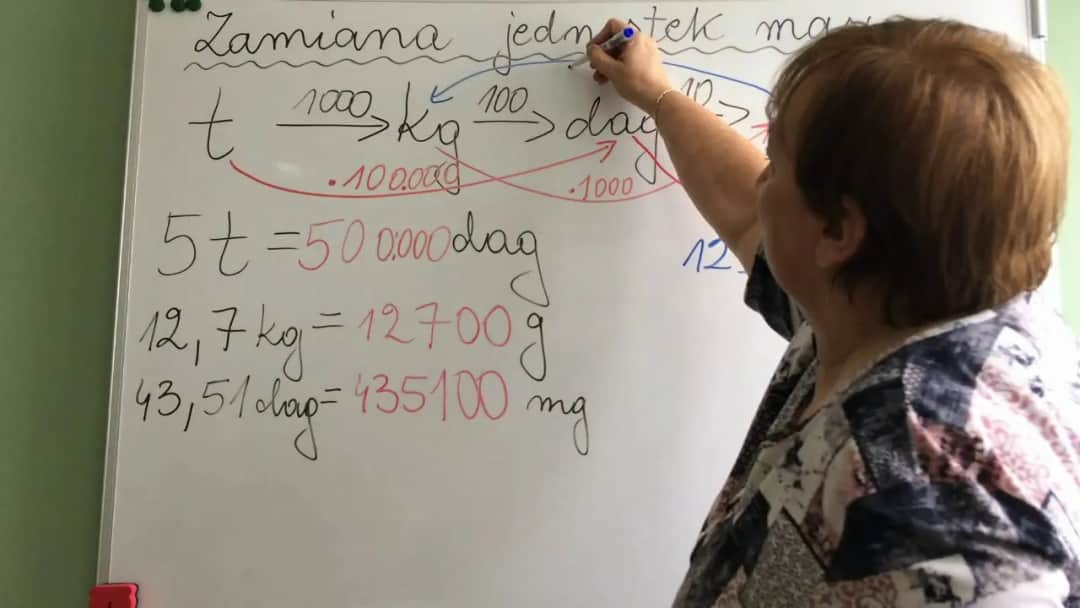 Zamiana jednostek
t 1000 kg 100 dag 10
·100.000 ·1000
5t = 500.000 dag
12,
12,7 kg = 12700 g
43,51 dag = 435100 mg